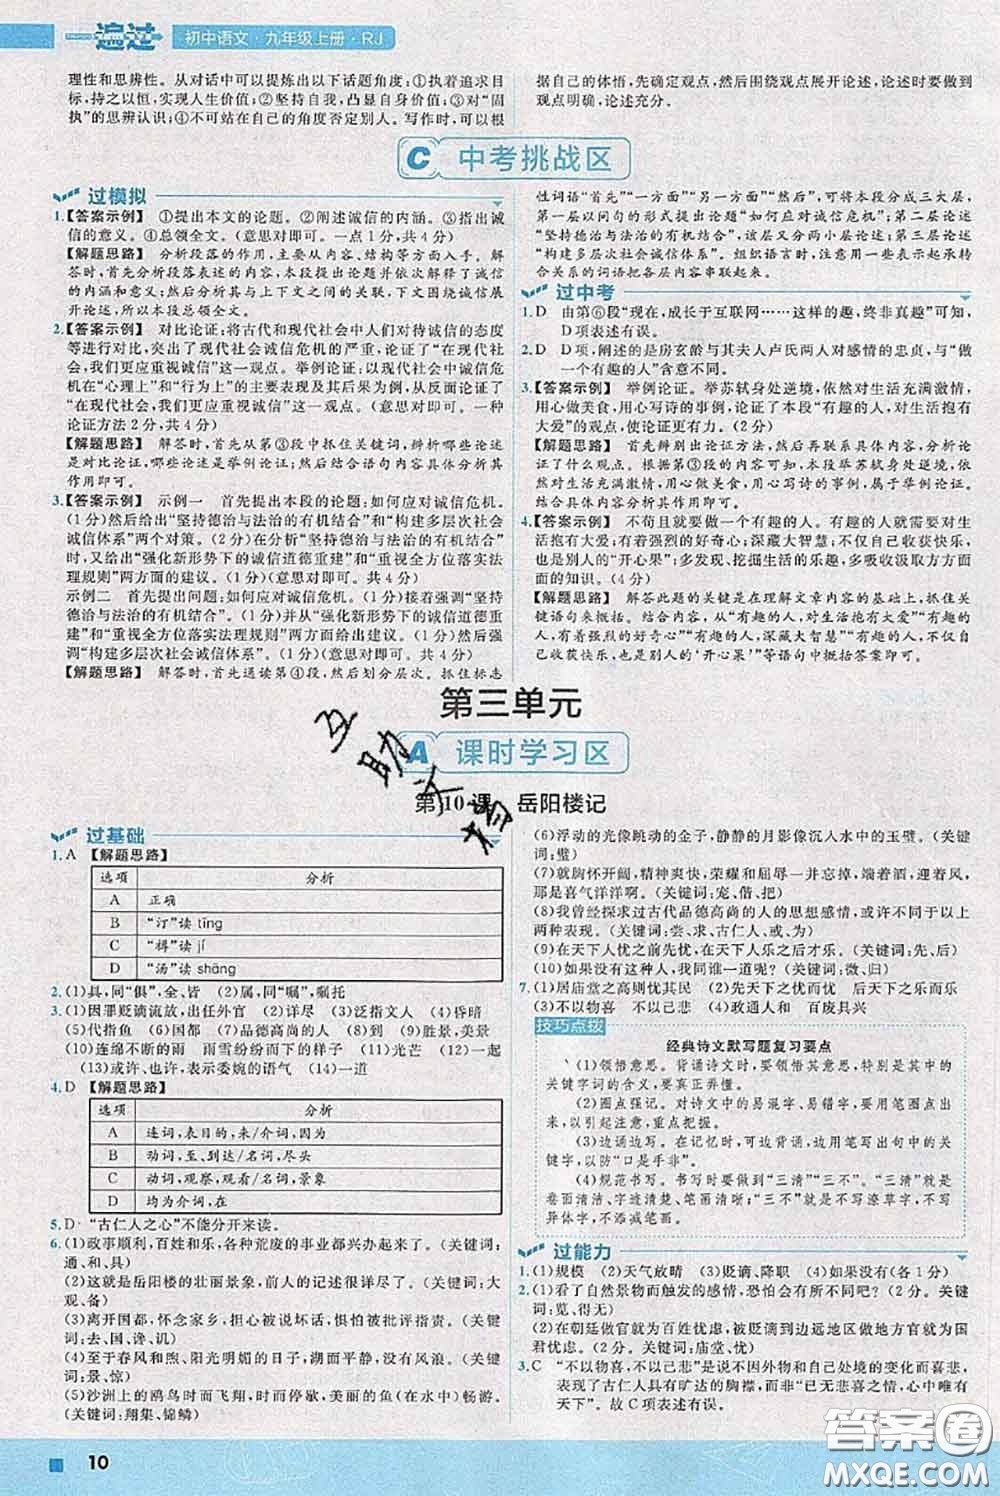 一遍过 初中语文·九年级上册·RJ
理性和思辨性。从对话中可以提炼出以下话题角度:①执着追求目
标,持之以恒,实现人生价值;②坚持自我,凸显自身价值;③对“固
执”的思辨认识;④不可站在自己的角度否定别人。写作时,可以根
据自己的体悟,先确定观点,然后围绕观点展开论述,论述时要做到
观点明确,论述充分。
C 中考挑战区
过模拟
1.【答案示例】 ①提出本文的论题。②阐述诚信的内涵。③指出诚
信的意义。④总领全文。(意思对即可。一点1分,共4分)
【解题思路】 分析段落的作用,主要从内容、结构等方面入手。解
答时,首先分析段落表述的内容,提出论题并依次解释了诚信
的内涵和意义,然后分析其与上下文之间的关联,下文围绕诚信展
开论述,所以此为总领全文的作用。
2.【答案示例】 对比论证;将古代和现代社会中人们对待诚信的态度
等进行对比,突出了现代社会诚信危机的严重,论证了“在现代社
会,我们更应重视诚信”这一观点。举例论证:以现代社会中诚信危
机在“心理上”和“行为上”的主要表现及其后果为例,从反面论证了
“在现代社会,我们更应重视诚信”这一观点。(意思对即可。一种
论证方法2分,共4分)
【解题思路】 解答时,首先从第③段中抓住关键词,辨析哪些论述
是对比论证,哪些论述是举例论证;然后结合论述语句分析其具体
作用即可。
3.【答案示例】 示例一 首先提出本段的论题:如何应对诚信危机。
(1分)然后给出“坚持德治与法治的有机结合”和“构建多层次社会
诚信体系”两个对策。(2分)在分析“坚持德治与法治的有机结合”
时,又给出“强化新形势下的诚信道德重建”和“重视全方位落实法
理规则”两方面的建议。(1分)(意思对即可。共4分)
示例二 首先提出问题:如何应对诚信危机。(1分)接着强调“坚持
德治与法治的有机结合”。(1分)并从“强化新形势下的诚信道德重
建”和“重视全方位落实法理规则”两方面给出建议。(1分)然后强
调“构建多层次社会诚信体系”。(1分)(意思对即可。共4分)
【解题思路】 解答时,首先通读第④段,然后划分层次。抓住标志
性词语“首先”“一方面”“另一方面”“然后”,可将本段分成三大层,
第一层以问句的形式提出论题“如何应对诚信危机”;第二层论述
“坚持德治与法治的有机结合”,该层又分两小层论述;第三层论述
“构建多层次社会诚信体系”。组织语言时,注意用一些表示承接
关系的词语把各层内容串联起来。
过中考
1. D 由第⑥段“现在,成长于互联网……这样的趣,终非真趣”可知,
D项表述有误。
2. D D项,阐述的是房玄龄与其夫人卢氏两人对感情的忠贞,与“做
一个有趣的人”含意不同。
3.【答案示例】 举例论证。举苏轼身处逆境,依然对生活充满激情,
用心做美食,用心写诗的事例,论证了本段“有趣的人,对生活抱有
大爱”的观点,使论证更有力。(2分)
【解题思路】 首先辨别出论证方法,然后再联系具体内容,分析论
证了什么观点。根据第③段的内容可知,本段举苏轼身处逆境,依
然对生活充满激情,用心做美食,用心写诗的事例,属于举例论证。
结合具体内容分析其作用即可。
4.【答案示例】 不苟且就要做一个有趣的人。有趣的人就需要对生
活抱有大爱;有着强烈的好奇心;深藏大智慧;不但自己收获快乐,
也是别人的“开心果”;多发现、挖掘生活的乐趣,多吸收汲取方方面
面的知识。(4分)
【解题思路】 解答此题的关键是在理解文章内容的基础上,抓关键
语句来概括。结合内容,从“有趣的人,对生活抱有大爱”“有趣的人,
有着强烈的好奇心”“有趣的人,深藏大智慧”“有趣的人,不但自己
收获快乐,也是别人的‘开心果’”等语句中概括答案即可。
第三单元
A 课时学习区
第10课 岳阳楼记
过基础
1. A 【解题思路】
选项 分析
A 正确
B “汀”读tīng
C “楫”读jí
D “汤”读shāng
2. (1)具,同“俱”,全、皆 (2)属,同“嘱”,嘱托
3. (1)因罪贬谪流放,出任外官 (2)尽 (3)泛指文人 (4)昏暗
(5)代指鱼 (6)国都 (7)品德高尚的人 (8)到 (9)胜景,美景
(10)连绵不断的雨 雨雪纷纷而下的样子 (11)光芒 (12)一起
(13)或许、也许,表示委婉的语气 (14)一道
4. D 【解题思路】
选项 分析
A 连词,表目的,来/介词,因为
B 动词,至、到达/名词,尽头
C 动词,观察,观看/名词,景象
D 均为介词,在
5. D “古仁人之心”不能分开来读。
6. (1)政事顺利,百姓和乐,各种荒废的事业都兴办起来了。(关键词:
通、和、具)
(2)这就是岳阳楼的壮丽景象,前人的记述很详尽了。(关键词:大
观、备)
(3)离开国都,怀念家乡,担心被说坏话,惧怕被批评指责。(关键
词:去、国、谗、讥)
(4)至于春风和煦、阳光明媚的日子,湖面平静,没有风浪。(关键
词:景、惊)
(5)沙洲上的鸥鸟时而飞翔,时而停歇,美丽的鱼(在水中)畅游。
(关键词:翔集、锦鳞)
(6)浮动的光像跳动的金子,静静的月影像沉入水中的玉璧。(关键
词:璧)
(7)就胸怀开阔,精神爽快,荣耀和屈辱一并忘掉,端着酒,迎着风,
那是喜气洋洋啊。(关键词:宠、偕、把)
(8)我曾经探求过古代品德高尚的人的思想感情,或许不同于以上
两种表现。(关键词:尝、求、古仁人、或、为)
(9)在天下人忧之前先忧,在天下人乐之后才乐。(关键词:先、后)
(10)如果没有这种人,我同谁一道呢?(关键词:微、归)
7. (1)居庙堂之高则忧其民 (2)先天下之忧而忧 后天下之乐而乐
(3)不以物喜 不以己悲 (4)政通人和 百废具兴
技巧点拨
经典诗文默写题复习要点
(1)领悟意思。背诵诗文时,要领悟其意思,尤其是其中的
关键字词的含义,要真正弄懂。
(2)圈点强记。对诗文中的易混字、易错字,要用笔圈点出
来,以引起注意,重点把握。
(3)边诵边写。在记忆时,可边背诵,边用笔写出句中的关
键字,以防“口是手非”。
(4)规范书写。书写时要做到“三清”“三不”。“三清”就是
卷面清洁、字迹清楚、笔画清晰;“三不”就是不写潦草字,不写
异体字,不添减笔画。
过能力
1. (1)规模 (2)天气放晴 (3)贬谪、降职 (4)如果没有(各1分)
2. (1)看了自然景物而触发的感情,恐怕会有所不同吧?(2分。关键
词:览、得无)
(2)在朝廷做官就为百姓忧虑,被贬谪到边远地区做地方官就为国
君忧虑。(2分。关键词:庙堂、忧)
3. C “不以物喜,不以己悲”是说不因外物和自己处境的变化而喜悲,
表现了古仁人具有旷达的胸襟,而非“已无悲喜之情,心中唯有
天下”。故C项表述有误。
互助文档
答案圈
MXQE.COM
10